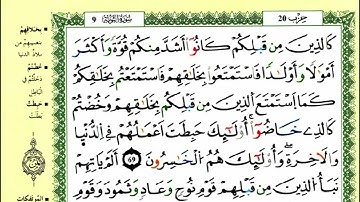 حزب 20
سورة التوبة
9
كَالَّذِينَ مِن قَبْلِكُمْ كَانُوٓا۟ أَشَدَّ مِنكُمْ قُوَّةً وَأَكْثَرَ
أَمْوَٰلًا وَأَوْلَٰدًا فَاسْتَمْتَعُوا۟ بِخَلَٰقِهِمْ فَاسْتَمْتَعْتُم بِخَلَٰقِكُمْ
كَمَا اسْتَمْتَعَ الَّذِينَ مِن قَبْلِكُم بِخَلَٰقِهِمْ وَخُضْتُمْ
كَالَّذِے خَاضُوٓا۟ أُو۟لَٰٓئِكَ حَبِطَتْ أَعْمَٰلُهُمْ فِے الدُّنْيَا
وَالَاخِرَةِ وَأُو۟لَٰٓئِكَ هُمُ الْخَٰسِرُونَ 69 أَلَمْ يَاتِهِمْ
نَبَأُ الَّذِينَ مِن قَبْلِهِمْ قَوْمِ نُوحٍ وَعَادٍ وَثَمُودَ وَقَوْمِ
بخلاقهم
بنصيبهم من
ملاذ الدنيا
خضتم
دخلتم في
الباطل
حبطت
بطلت
المؤتفكات